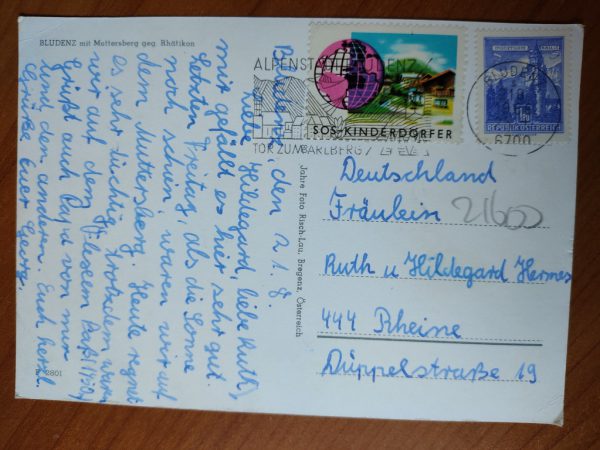 BLUDENZ mit Muttersberg geg. Rhätikon
Bludenz, den 21.8.
Liebe Hildegard, liebe Ruth,
mir gefällt es hier sehr gut.
Letzten Freitag als die Sonne
noch schien, waren wir auf
dem Muttersberg. Heute regnet
es sehr tüchtig, trotzdem waren
wir auf dem
Grüßt auch Papa von mir
und den andern. Euch herzl.
Grüße Euer Georg.
2801
Jahre Foto Risch-Lau, Bregenz, Österreich
ALPENSTADT BLUDENZ
TOR ZUM ARLBERG
SOS-KINDERDÖRFER
REPUBLIK ÖSTERREICH
BLUDENZ
6700
Deutschland
Fräulein
Ruth u Hildegard Hermes
444 Rheine
Düppelstraße 19